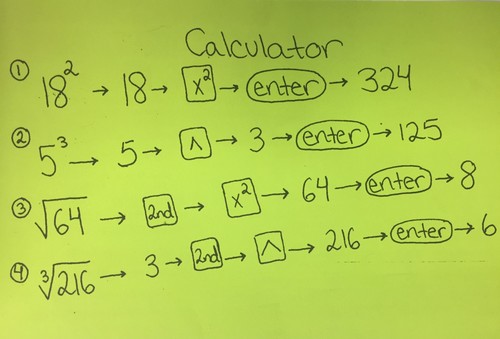 Calculator
① 18² → 18 → x² → enter → 324
② 5³ → 5 → ^ → 3 → enter → 125
③ √64 → 2nd → x² → 64 → enter → 8
④ ∛216 → 3 → 2nd → ^ → 216 → enter → 6